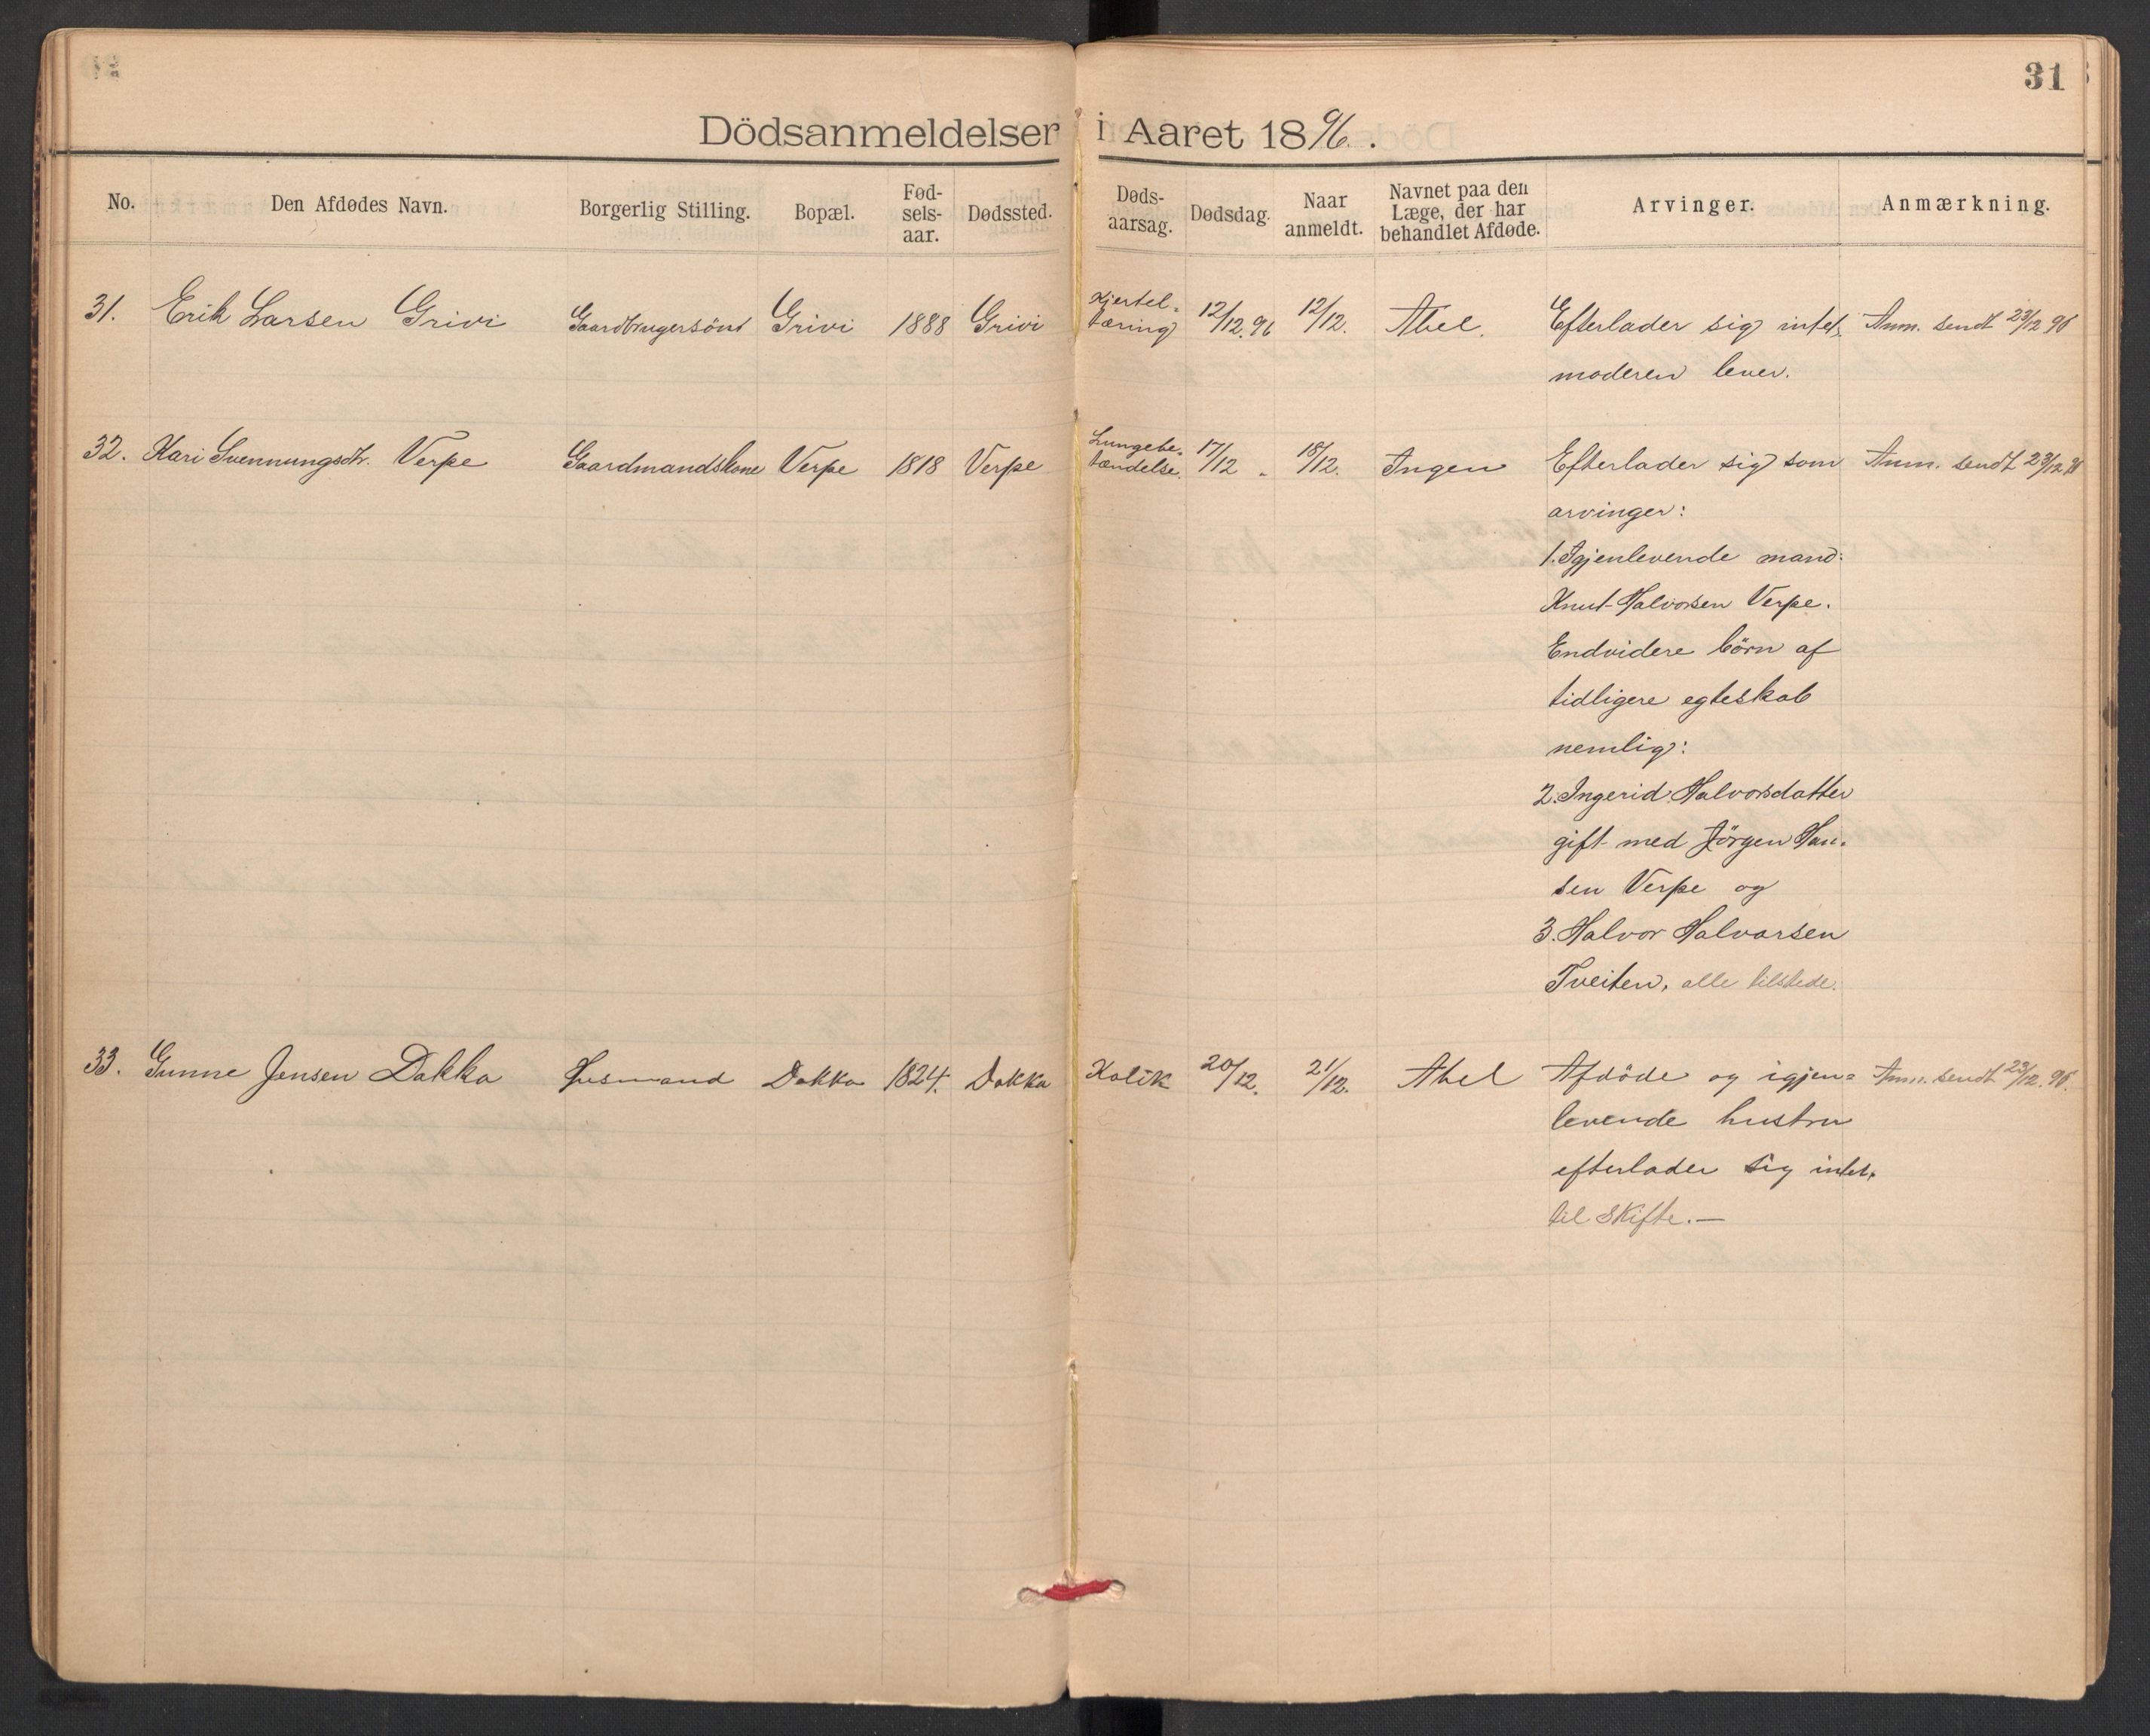 31
Dödsanmeldelser i Aaret 1896.
No. Den Afdødes Navn. Borgerlig Stilling. Bopæl. Fød-selsaar. Dødssted. Døds-aarsag. Dødsdag. Naar anmeldt. Navnet paa den Læge, der har behandlet Afdøde. Arvinger. Anmærkning.
31. Erik Larsen Grivi Gaardbrugersöns Grivi 1888 Grivi Kjertel-tæring 12/12.96 12/12. Abel. Efterlader sig intet, Anm. sendt 23/12 96
moderen lever.
32. Kari Svennungsdtr. Verpe Gaardmandskone Verpe 1818 Verpe Lungebe-tændelse. 17/12 „ 18/12. Ingen Efterlader sig som Anm. sendt 23/12 96
arvinger:
1. Igjenlevende mand:
Knut Halvorsen Verpe.
Endvidere börn af
tidligere egteskab
nemlig:
2. Ingerid Halvorsdatter
gift med Jörgen Han-
sen Verpe og
3. Halvor Halvorsen
Tveiten, alle tilstede.
33. Gunne Jensen Dakka Husmand Dakka 1824. Dakka Kolik 20/12. 21/12. Abel Afdöde og igjen= Anm. sendt 23/12. 96.
levende hustru
efterlader sig intet,
til Skifte.—